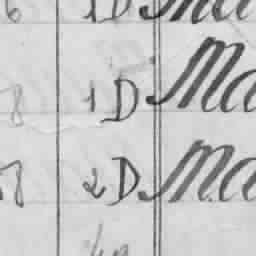 6 1D Ma
8 1D Ma
58 2D Ma